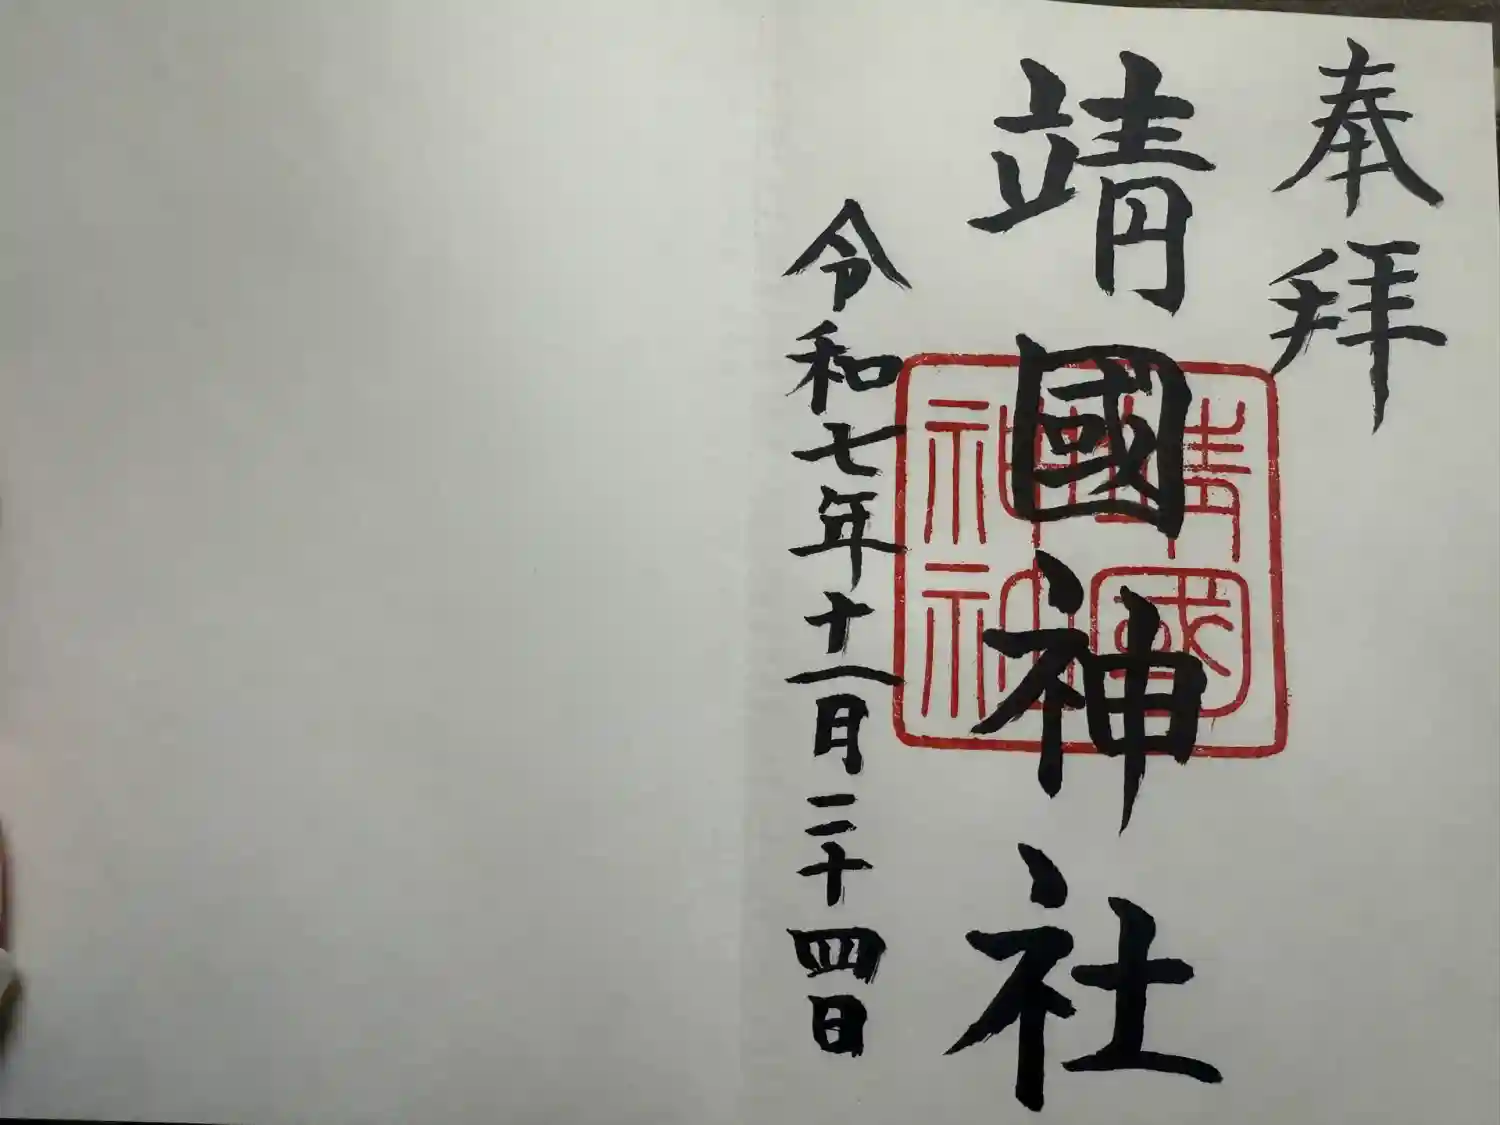 奉拜
靖國神社
靖國
神社
令和七年十一月二十四日